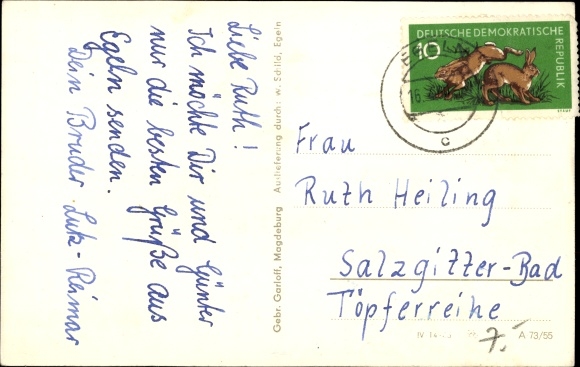 Liebe Ruth!
Ich möchte Dir und Günter
nur die besten Grüße aus
Egeln senden.
Dein Bruder Lutz-Reimar
Gebr. Garloff, Magdeburg Auslieferung durch: W. Schild, Egeln
10 DEUTSCHE DEMOKRATISCHE
REPUBLIK
16.
c
Frau
Ruth Heiling
Salzgitter-Bad
Töpferreihe
7.-
A 73/55